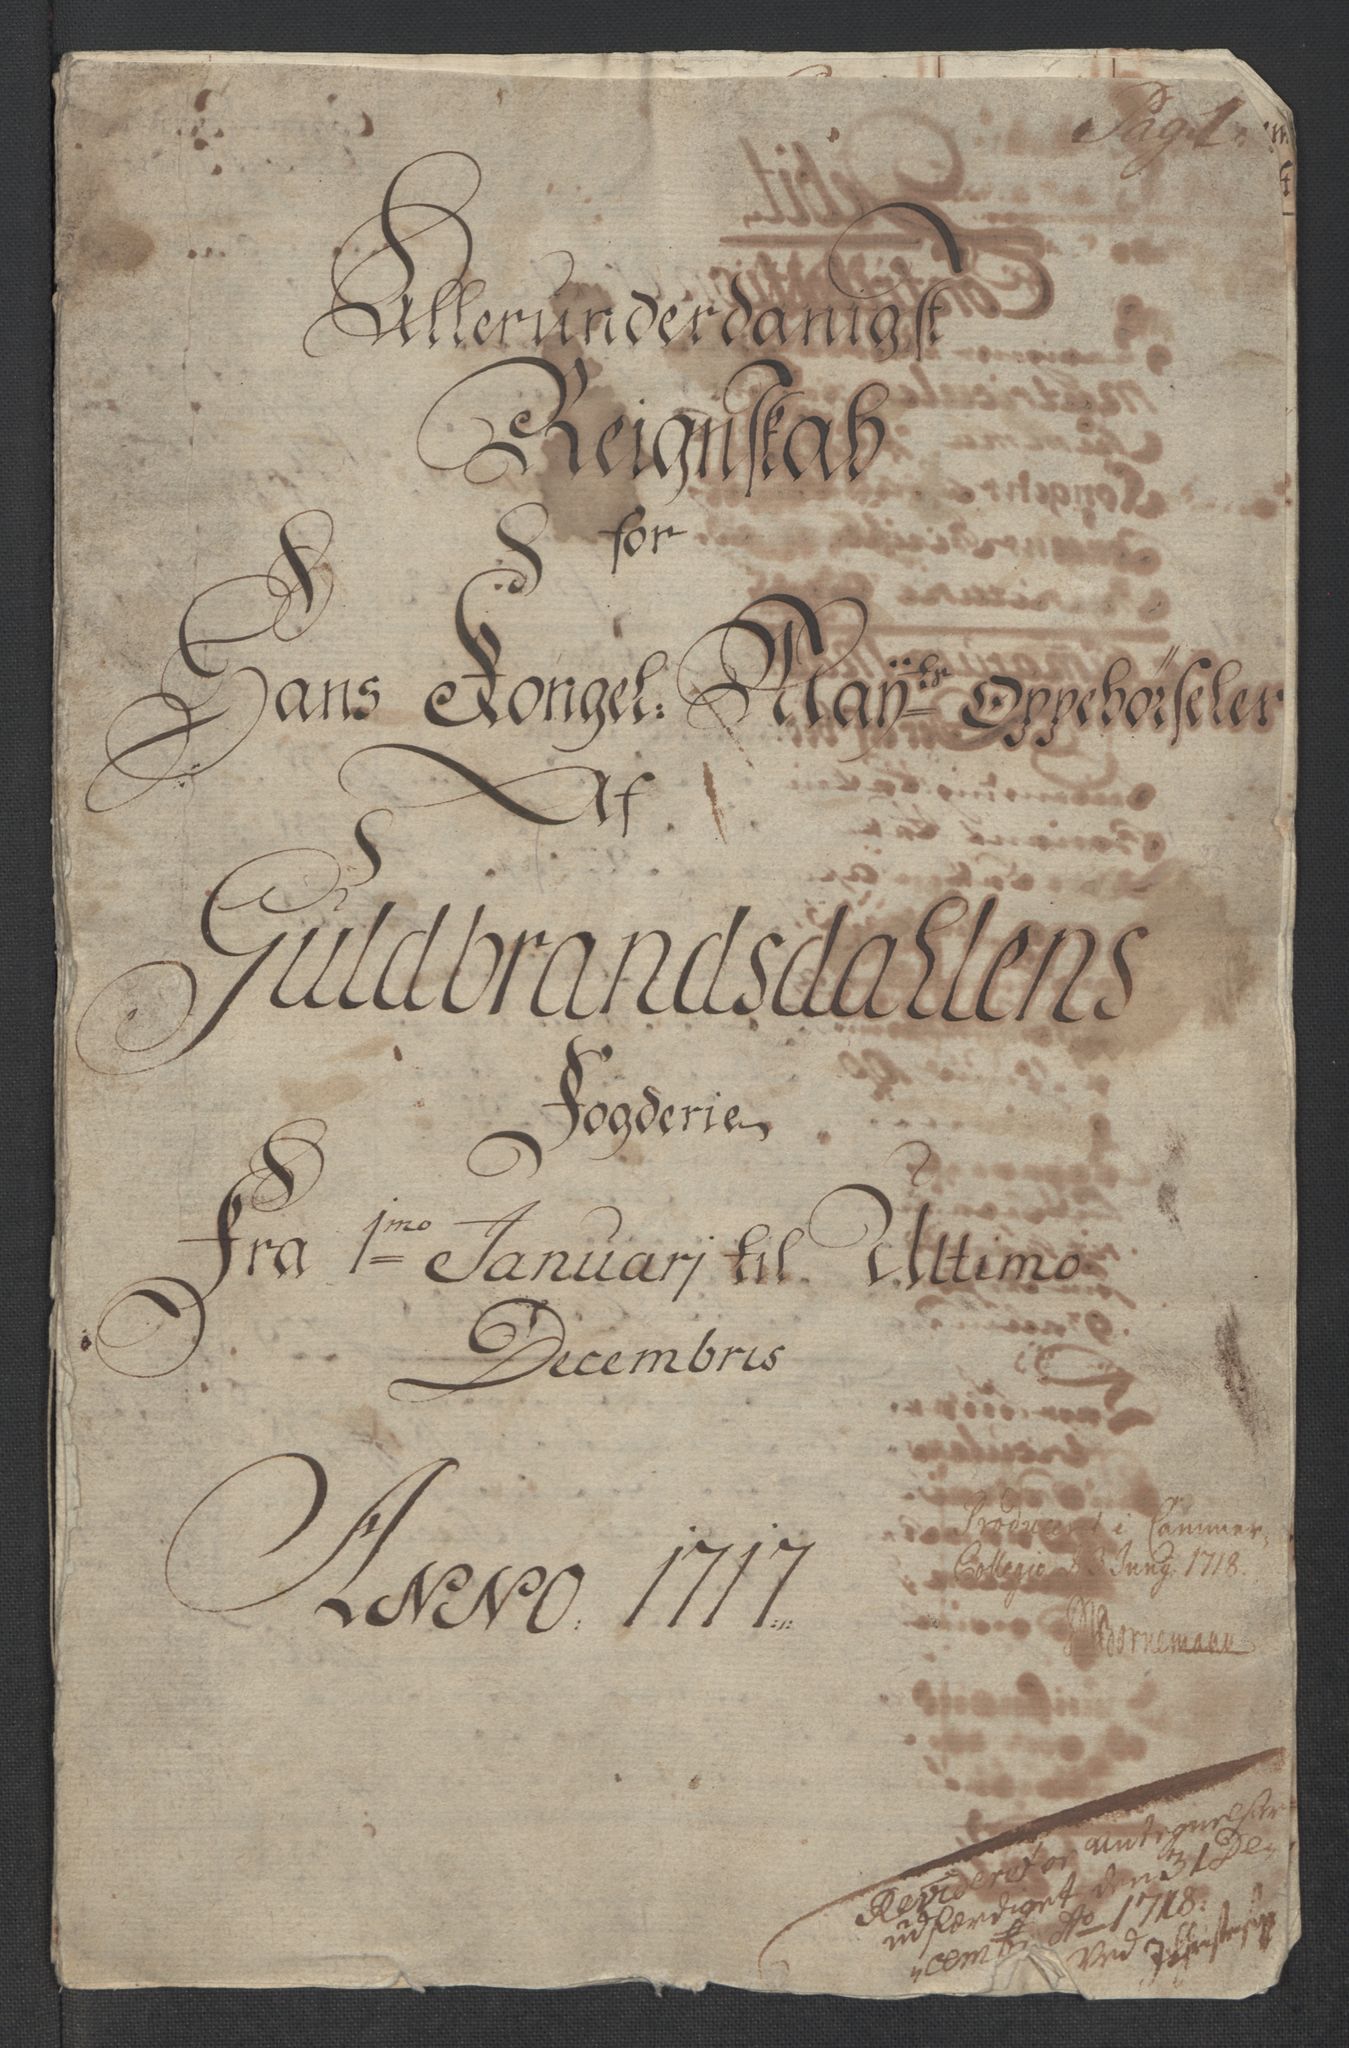 Pag: 1:
Allerunderdanigst
Reignskab
for
Hans Kongel: May:ts Oppebörseler
Af
Guldbrandsdahlens
Fogderie
Fra 1mo Januarj til Ultimo
Decembris
ANNO. 1717
Produceret i Cammer
Collegio d 3 Junij 1718.
Bornemann
Revideret og antegnelser
udfærdiget den 31 De
cembr Ao 1718.
ved